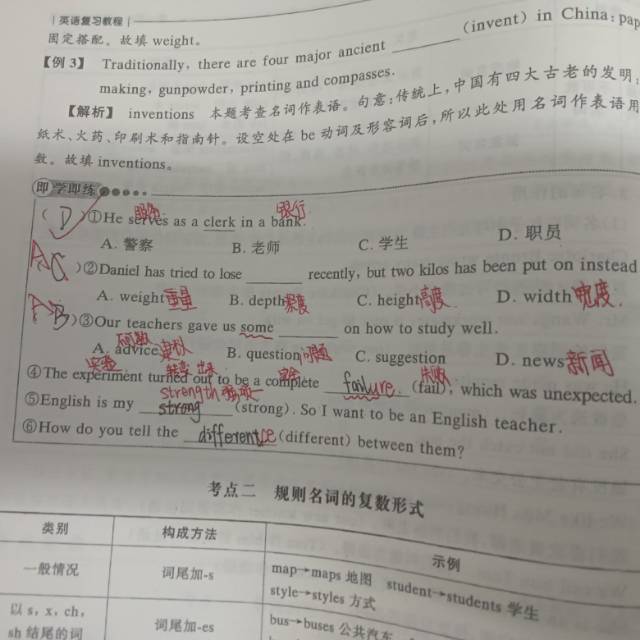 英语复习教程
固定搭配。故填 weight。
【例3】 Traditionally, there are four major ancient ________ (invent) in China: pap
making, gunpowder, printing and compasses.
【解析】 inventions 本题考查名词作表语。句意:传统上,中国有四大古老的发明:
纸术、火药、印刷术和指南针。设空处在 be 动词及形容词后,所以此处用名词作表语用
数。故填 inventions。
即学即练
( D )①He serves as a clerk in a bank. 银行
A. 警察 B. 老师 C. 学生 D. 职员
A )②Daniel has tried to lose ________ recently, but two kilos has been put on instead
A. weight 重量 B. depth 深度 C. height 高度 D. width 宽度.
A B )③Our teachers gave us some ________ on how to study well.
A. advice 建议 B. question 问题 C. suggestion D. news 新闻
④The experiment 实验 turned out to be a complete 完全 failure. (fail) 失败, which was unexpected.
strength
⑤English is my strong (strong). So I want to be an English teacher.
⑥How do you tell the difference (different) between them?
考点二 规则名词的复数形式
类别 构成方法 示例
一般情况 词尾加-s map→maps 地图 student→students 学生
style→styles 方式
以 s, x, ch, sh 结尾的词 词尾加-es bus→buses 公共汽车